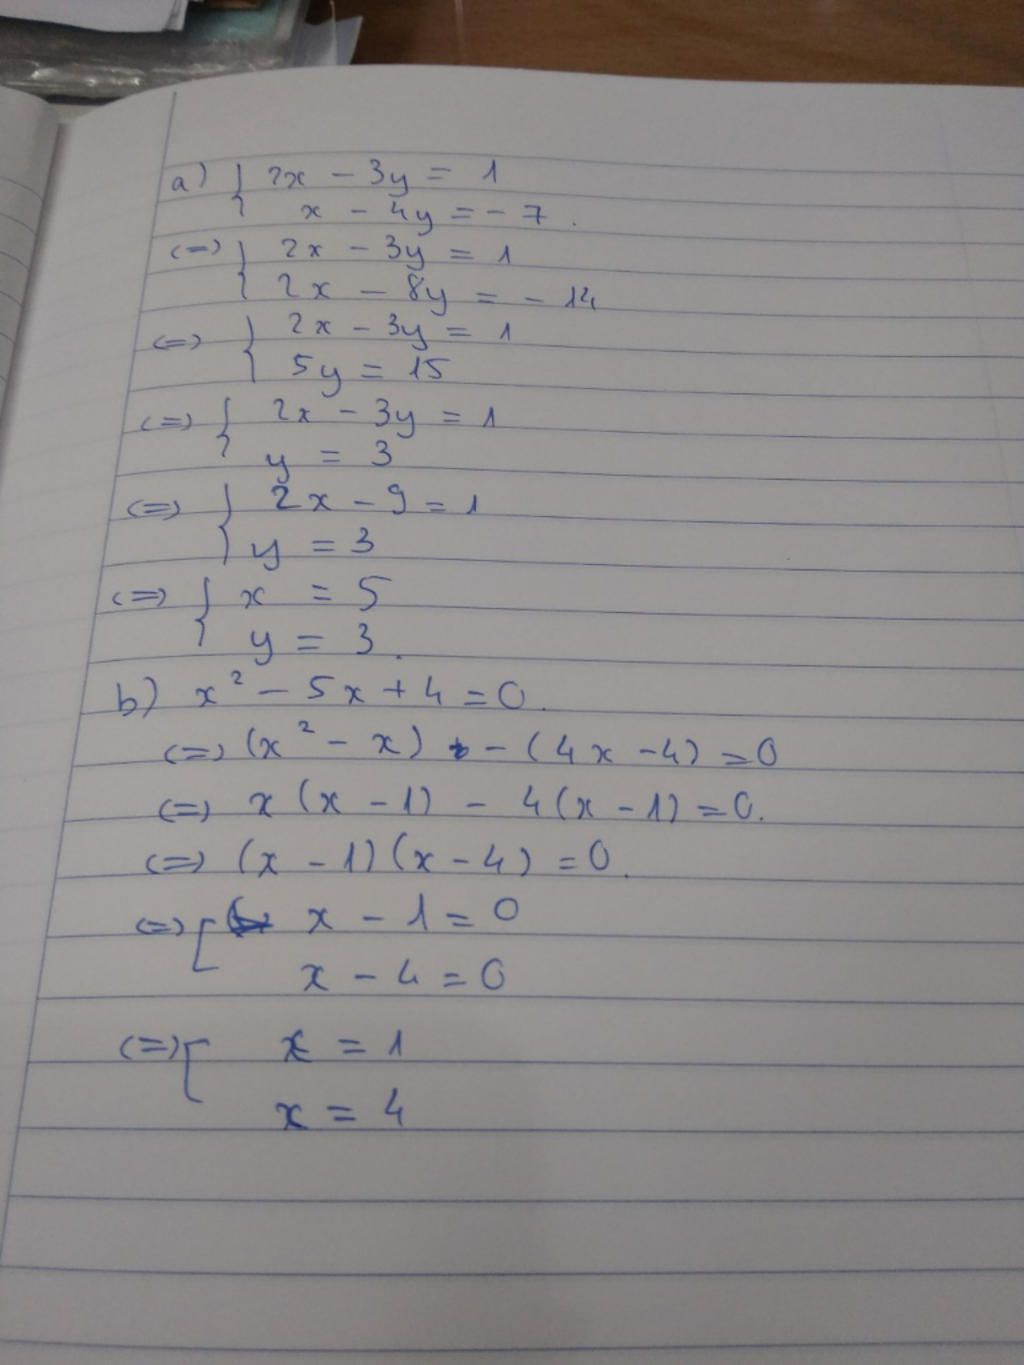 a) { 2x - 3y = 1
x - 4y = - 7 .
(=) { 2x - 3y = 1
2x - 8y = - 14
(=) { 2x - 3y = 1
5y = 15
(=) { 2x - 3y = 1
y = 3
(=) { 2x - 9 = 1
y = 3
(=) { x = 5
y = 3 .
b) x² - 5x + 4 = 0 .
(=) (x² - x) - (4x - 4) = 0
(=) x (x - 1) - 4(x - 1) = 0.
(=) (x - 1)(x - 4) = 0 .
(=) [ x - 1 = 0
x - 4 = 0
(=) [ x = 1
x = 4